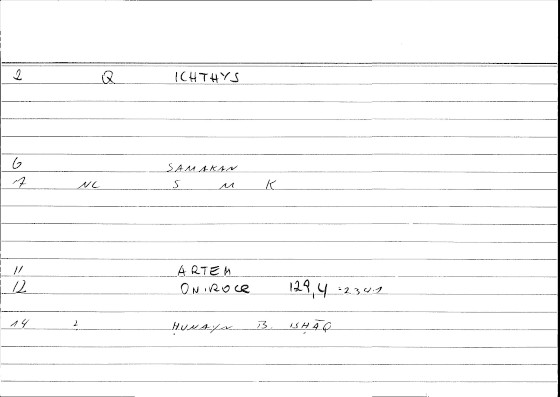 2 Q ICHTHYS
6 SAMAKAN
7 NC S M K
11 ARTEM
12 ONIROCR 129,4 :2341
14 2 ḤUNAYN B. ISḤĀQ